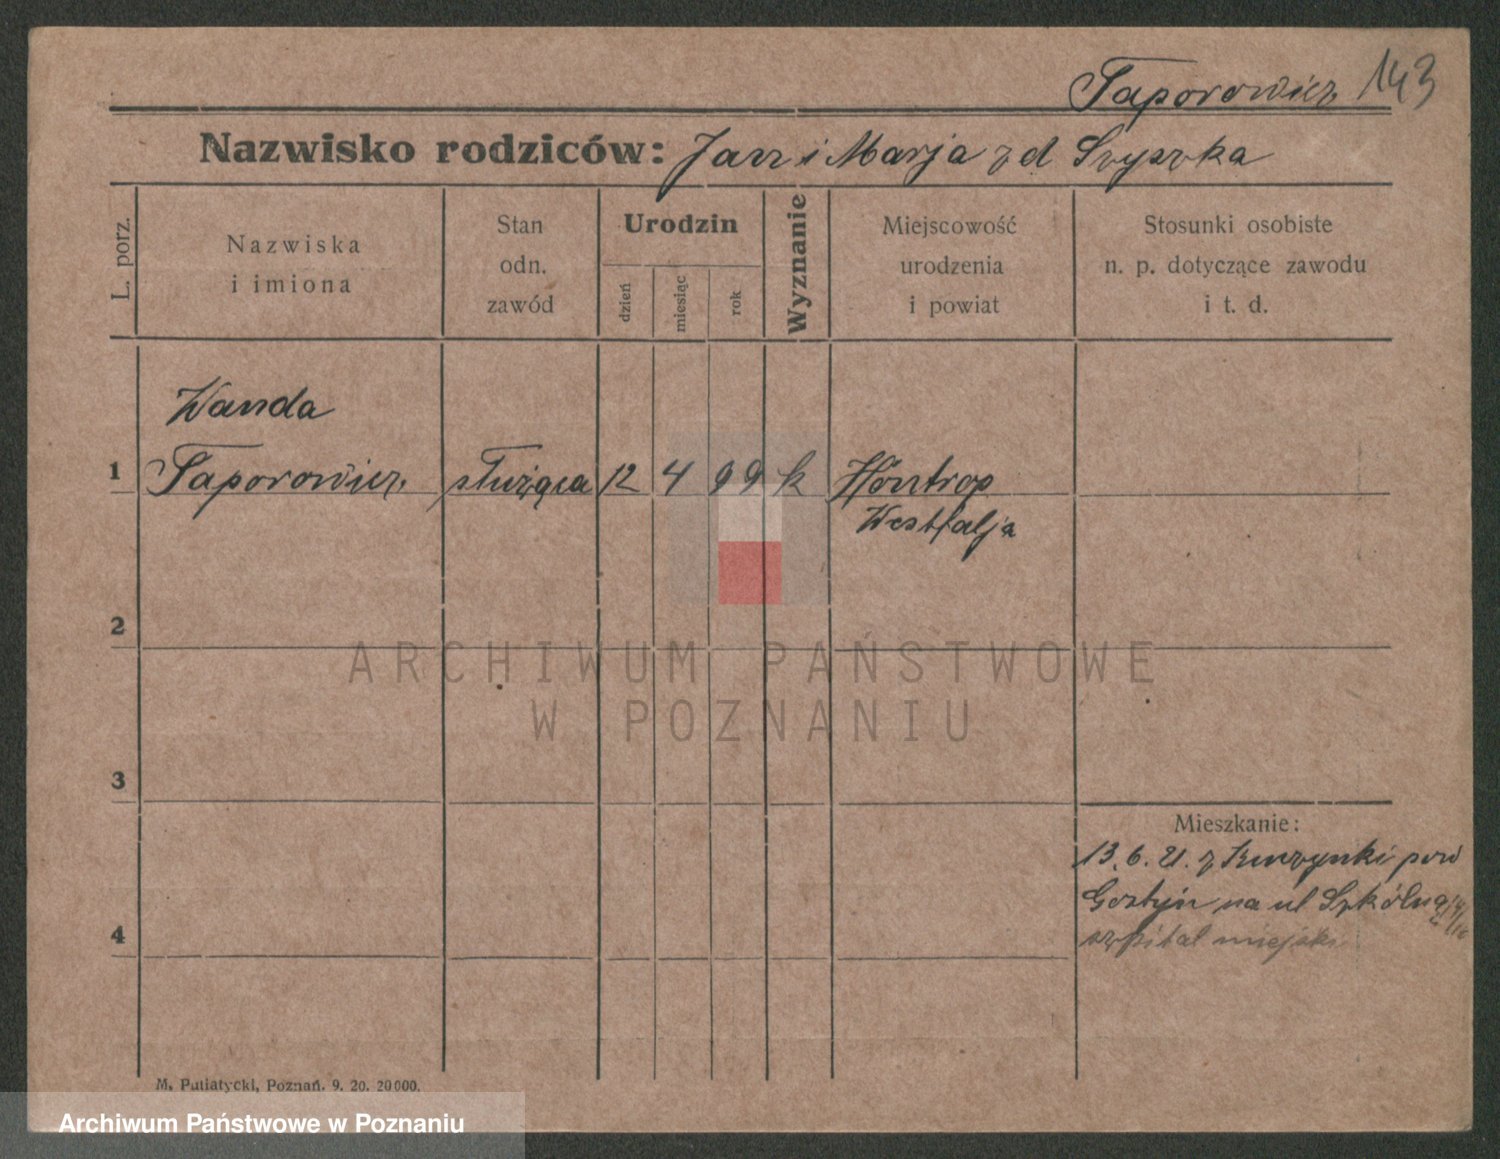 Taporowicz 143
Nazwisko rodziców: Jan i Marja zd Szyszka
L. porz.
Nazwiska
i imiona
Stan
odn.
zawód
Urodzin
dzień
miesiąc
rok
Wyznanie
Miejscowość
urodzenia
i powiat
Stosunki osobiste
n. p. dotyczące zawodu
i t. d.
Wanda
1 Taporowicz służąca 12 4 99 k Höntrop
Westfalja
2
ARCHIWUM PAŃSTWOWE
W POZNANIU
3
Mieszkanie:
13.6.21. z pow
Gostyń na ul Szkólną
4 szpital miejski
M. Putiatycki, Poznań. 9. 20. 20000.
Archiwum Państwowe w Poznaniu